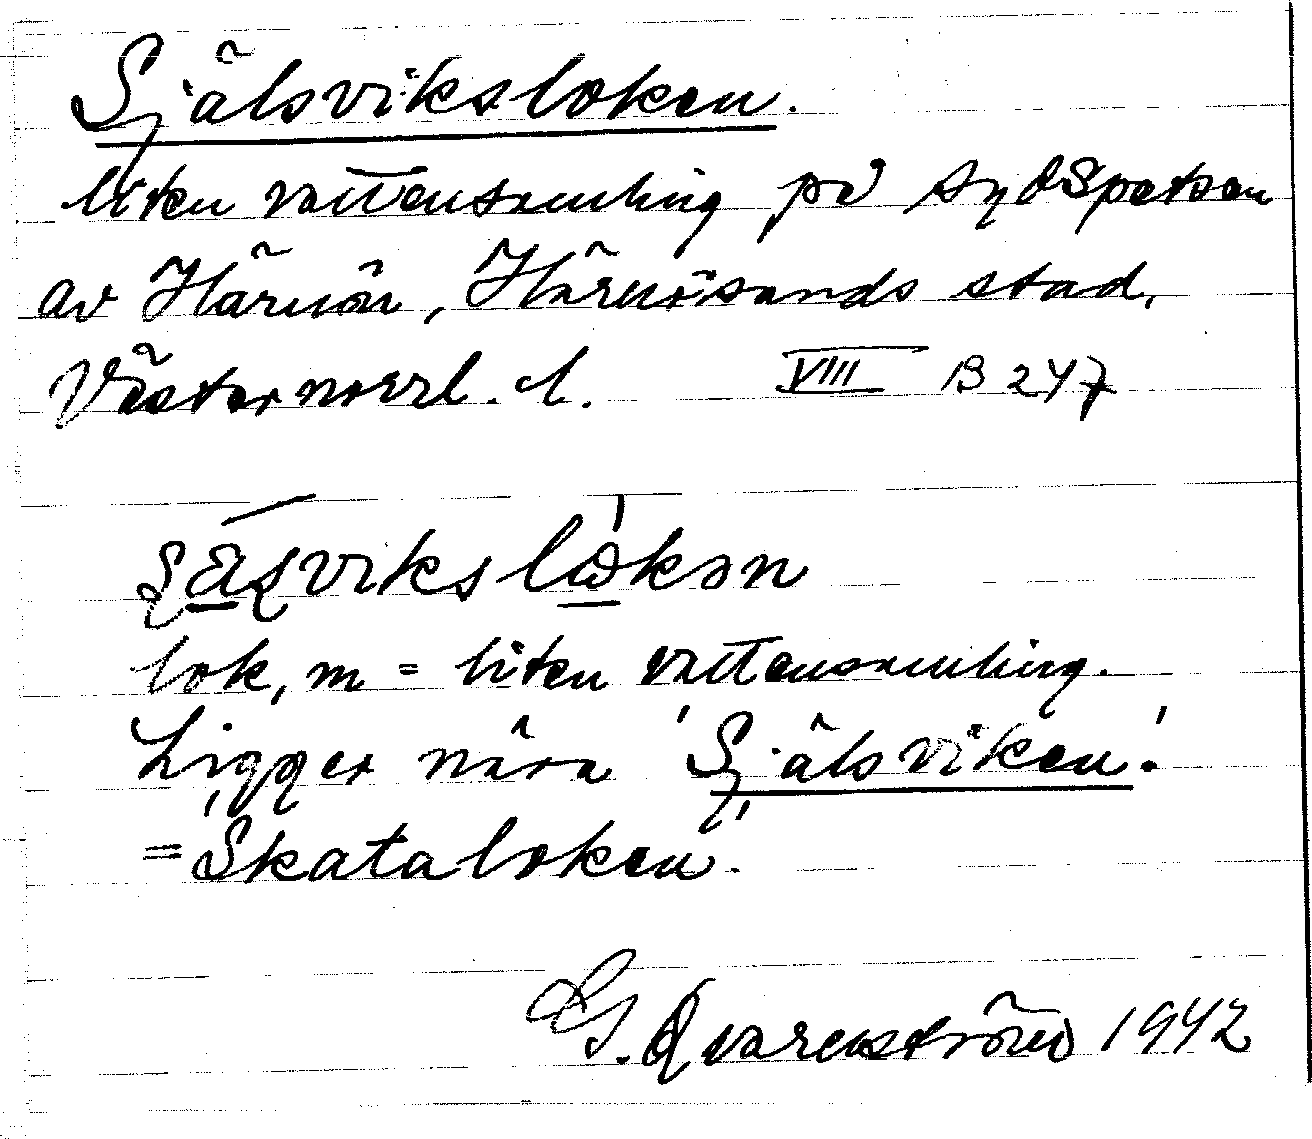 Själsviksloken.
liten vattensamling på sydspetsen
av Härnön, Härnösands stad,
Västernorrl. l. VIII B 247
lok, m = liten vattensamling.
Ligger nära 'Själsviken'.
= 'Skataloken'.
G. Qvarnström 1942